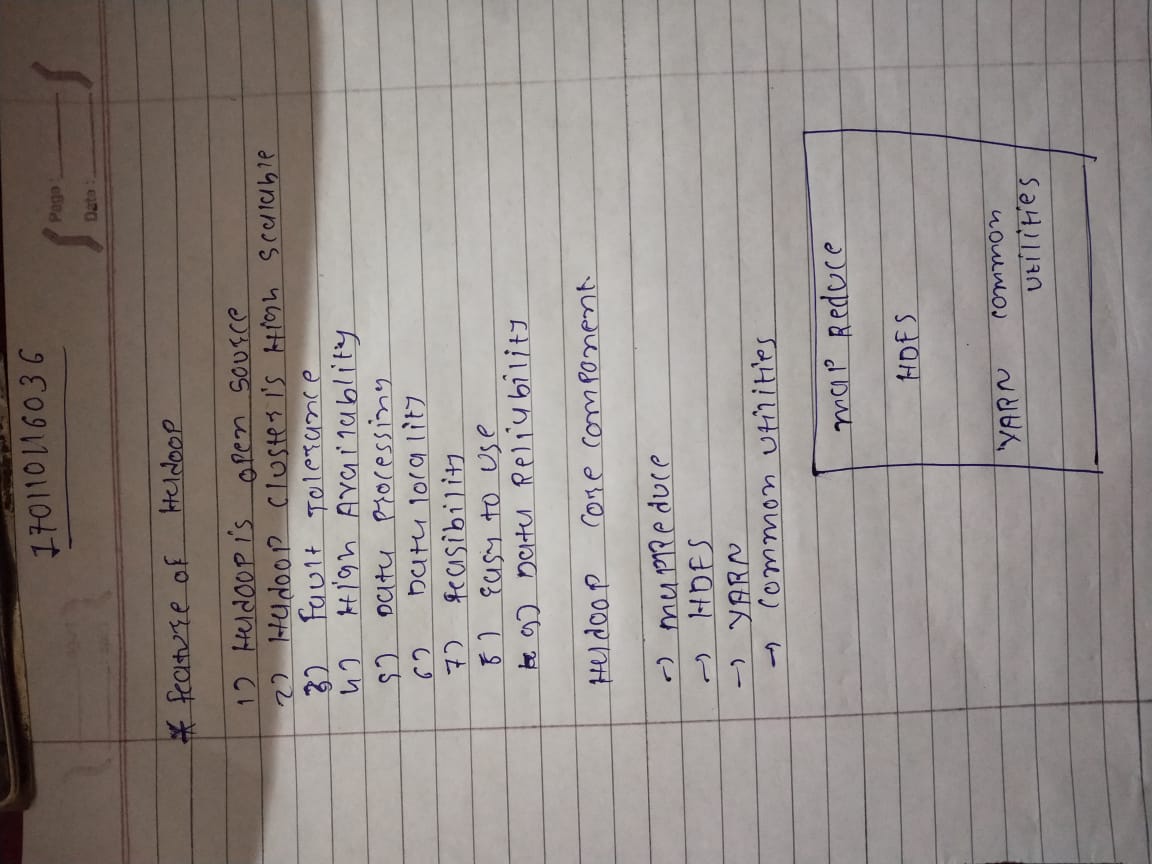 170110116036
Page:
Date:
* feature of Hadoop
1) Hadoop is open source
2) Hadoop cluster is High scalable
3) Fault Tolerance
4) High Availability
5) Data Processing
6) Data locality
7) feasibility
8) easy to use
9) Data Reliability
Hadoop core component
→ mapReduce
→ HDFS
→ YARN
→ common utilities
map Reduce
HDFS
YARN common
utilities